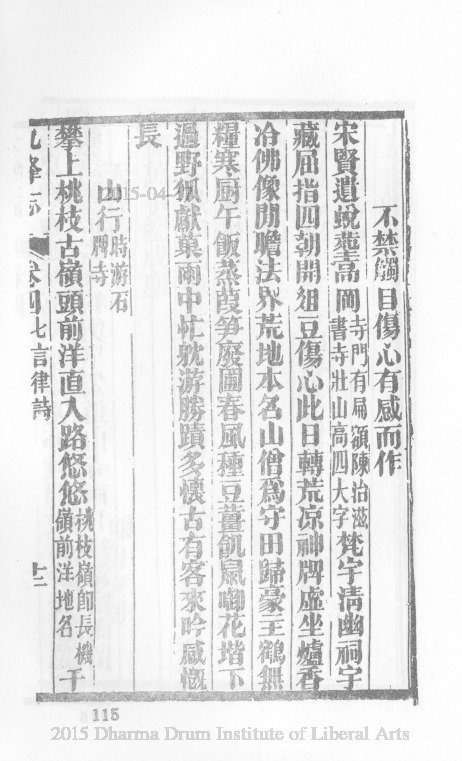 不禁觸目傷心有感而作
宋賢遺蛻葬高岡寺門有扁額陳治滋書寺壯山高四大字梵宇清幽祠宇
藏屈指四朝開俎豆傷心此日轉荒凉神牌虛坐爐香
冷佛像閒瞻法界荒地本名山僧爲守田歸豪主鶴無
糧寒厨午飯蒸葭笋廢圃春風種豆薑飢鼠啣花堦下
過野猿獻菓雨中忙躭游勝蹟多懷古有客來吟感慨
長
山行時游石牌寺
攀上桃枝古嶺頭前洋直入路悠悠桃枝嶺卽長機嶺前洋地名千
九峰志 卷四七言律詩 十二
115
2015-04-
2015 Dharma Drum Institute of Liberal Arts